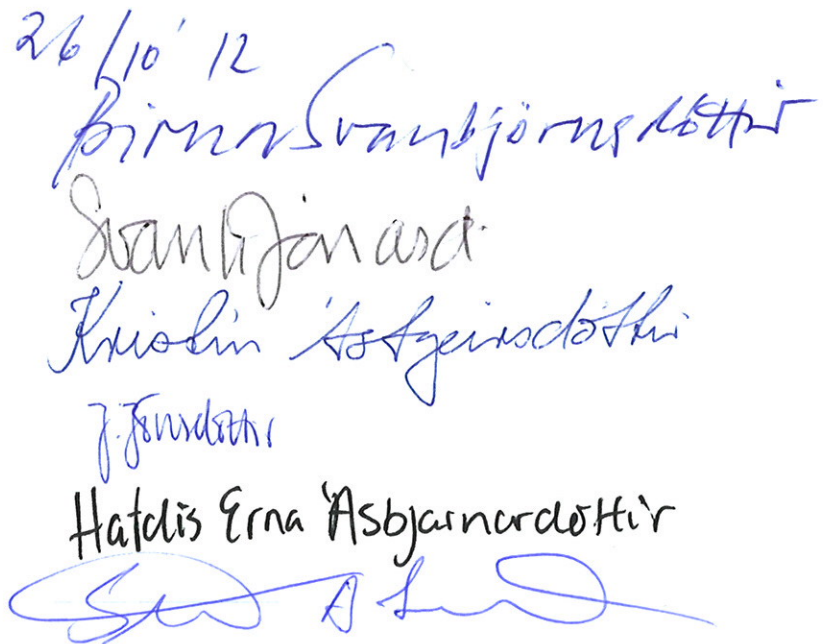 26/10 '12
Birna Svanbjörnsdóttir
Svanh Jónasd.
Kristín Ástgeirsdóttir
J. Jónsdóttir
Hafdís Erna Ásbjarnardóttir